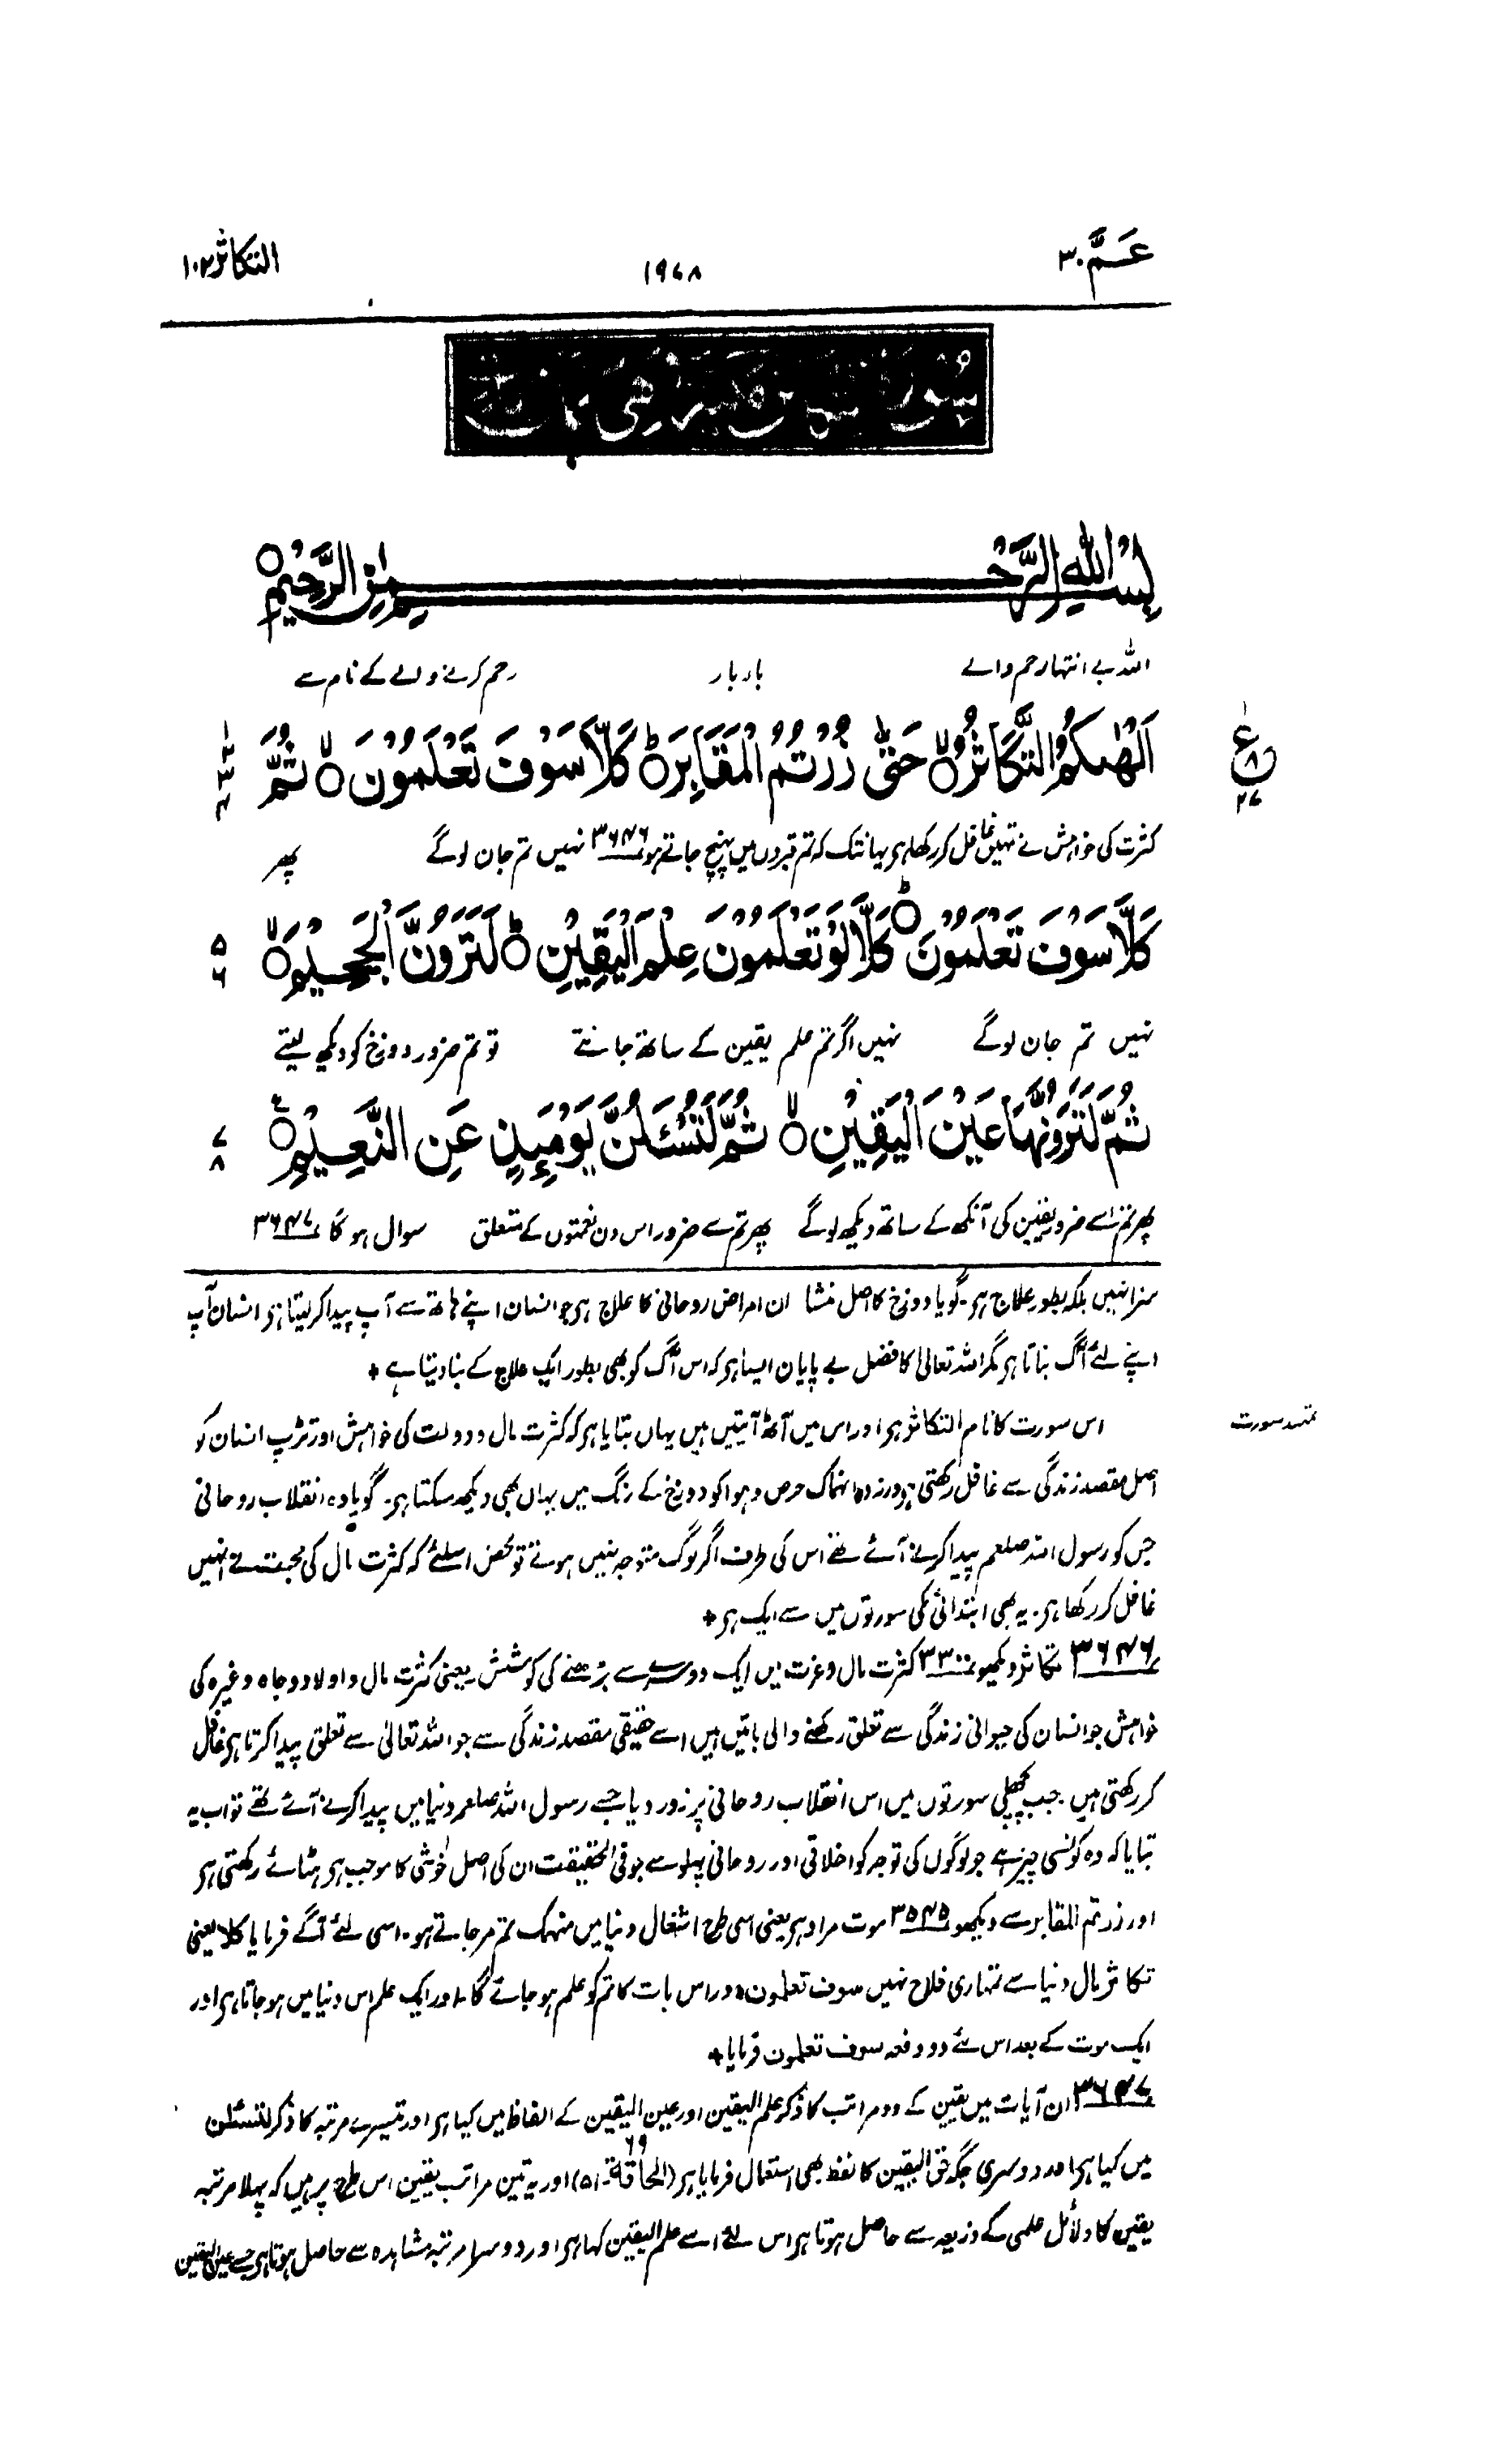 عَـمَّ ٣٠
١٩٤٨
التکاثر ١٠٢
بِسْمِ اللهِ الرَّحْمٰنِ الرَّحِيْمِ
اللہ بے انتہا رحم والے بار بار رحم کرنے والے کے نام سے
اَلْهٰىكُمُ التَّكَاثُرُ ۙ حَتّٰى زُرْتُمُ الْمَقَابِرَ ؕ كَلَّا سَوْفَ تَعْلَمُوْنَ ۙ ثُمَّ
کثرت کی خواہش نے تمہیں غافل کر رکھا ہر یہانتک کہ تم قبروں میں پہنچ جاتے ہو ٣٦٤٦ نہیں تم جان لوگے پھر
كَلَّا سَوْفَ تَعْلَمُوْنَ ؕ كَلَّا لَوْ تَعْلَمُوْنَ عِلْمَ الْيَقِيْنِ ؕ لَتَرَوُنَّ الْجَحِيْمَ ۙ
نہیں تم جان لوگے نہیں اگر تم علم یقین کے ساتھ جانتے تو تم ضرور دوزخ کو دیکھ لیتے
ثُمَّ لَتَرَوُنَّهَا عَيْنَ الْيَقِيْنِ ۙ ثُمَّ لَتُسْـَٔلُنَّ يَوْمَىِٕذٍ عَنِ النَّعِيْمِ
پھر تم اسے ضرور یقین کی آنکھ کے ساتھ دیکھ لوگے پھر تم سے ضرور اس دن نعمتوں کے متعلق سوال ہوگا ٣٦٤٧
سزا نہیں بلکہ بطور علاج ہر۔ گویا دوزخ کا اصل منشا ان امراض روحانی کا علاج ہر جو انسان اپنے ہاتھ سے آپ پیدا کرلیتا ہر انسان آپ
اپنے لئے آگ بناتا ہر مگر اللہ تعالیٰ کا فضل بے پایان ایسا ہر کہ اس آگ کو بھی بطور ایک علاج کے بنا دیتا ہے +
اس سورت کا نام التکاثر ہر اور اس میں آٹھ آیتیں ہیں یہاں بتایا ہر کہ کثرت مال و دولت کی خواہش اور تڑپ انسان کو
اصل مقصد زندگی سے غافل رکھتی ہر ورنہ وہ انہماک حرص و ہوا کو دوزخ کے رنگ میں یہاں بھی دیکھ سکتا ہر۔ گویا وہ انقلاب روحانی
جس کو رسول اللہ صلعم پیدا کرنے آئے تھے اس کی طرف اگر لوگ متوجہ نہیں ہوتے تو محض اسلئے کہ کثرت مال کی محبت نے انہیں
غافل کر رکھا ہر۔ یہ بھی ابتدائی مکی سورتوں میں سے ایک ہر +
تمہید سورت
٣٦٤٦ تکاثر دیکھو ٣٣٠٠ کثرت مال و عزت میں ایک دوسرے سے بڑھنے کی کوشش۔ یعنی کثرت مال و اولاد و جاہ وغیرہ کی
خواہش جو انسان کی حیوانی زندگی سے تعلق رکھنے والی باتیں ہیں اسے حقیقی مقصد زندگی سے جو اللہ تعالیٰ سے تعلق پیدا کرنا ہر غافل
کر رکھتی ہیں۔ جب پچھلی سورتوں میں اس انقلاب روحانی پر زور دیا جسے رسول اللہ صلعم دنیا میں پیدا کرنے آئے تھے تو اب یہ
بتایا کہ وہ کونسی چیز ہے جو لوگوں کی توجہ کو اخلاقی اور روحانی پہلو سے جو فی الحقیقت ان کی اصل خوشی کا موجب ہر ہٹائے رکھتی ہر
اور زرتم المقابر سے دیکھو ٣٥٤٥ موت مراد ہر یعنی اسی طرح اشغال دنیا میں منہمک تم مر جاتے ہو۔ اسی لئے آگے فرمایا کلا یعنی
تکاثر مال دنیا سے تمہاری فلاح نہیں سوف تعلمون اور اس بات کا تم کو علم ہو جائے گا۔ اور ایک علم اس دنیا میں ہو جاتا ہر اور
ایک موت کے بعد اس لئے دو دفعہ سوف تعلمون فرمایا +
٣٦٤٧ ان آیات میں یقین کے دو مراتب کا ذکر علم الیقین اور عین الیقین کے الفاظ میں کیا ہر اور تیسرے مرتبہ کا ذکر لتسئلن
میں کیا ہر اور دوسری جگہ حق الیقین کا لفظ بھی استعمال فرمایا ہر (الحاقة ٦٩۔٥١) اور یہ تین مراتب یقین اس طرح پر ہیں کہ پہلا مرتبہ
یقین کا دلائل علمی کے ذریعہ سے حاصل ہوتا ہر اس لئے اسے علم الیقین کہا ہر اور دوسرا مرتبہ مشاہدہ سے حاصل ہوتا ہر جسے عین الیقین